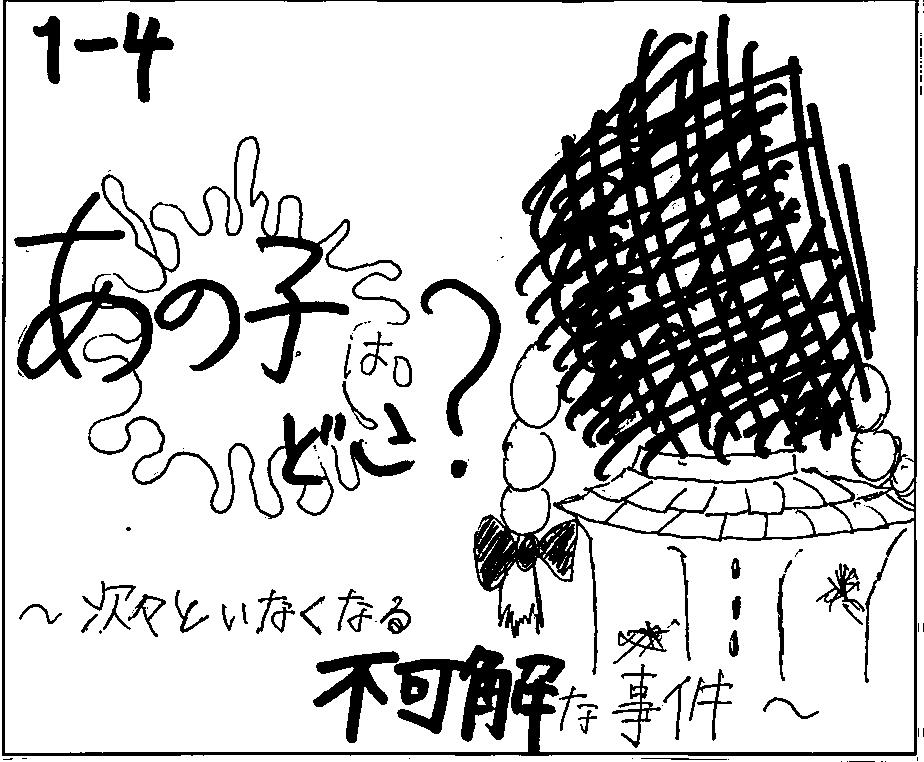 1-4
あの子は
どこ?
~次々といなくなる
不可解な事件~